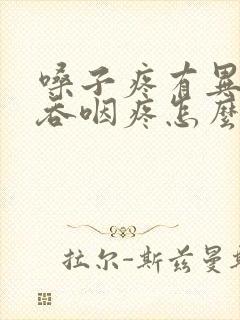 嗓子疼有異
吞咽疼怎麼
拉尔-斯兹曼